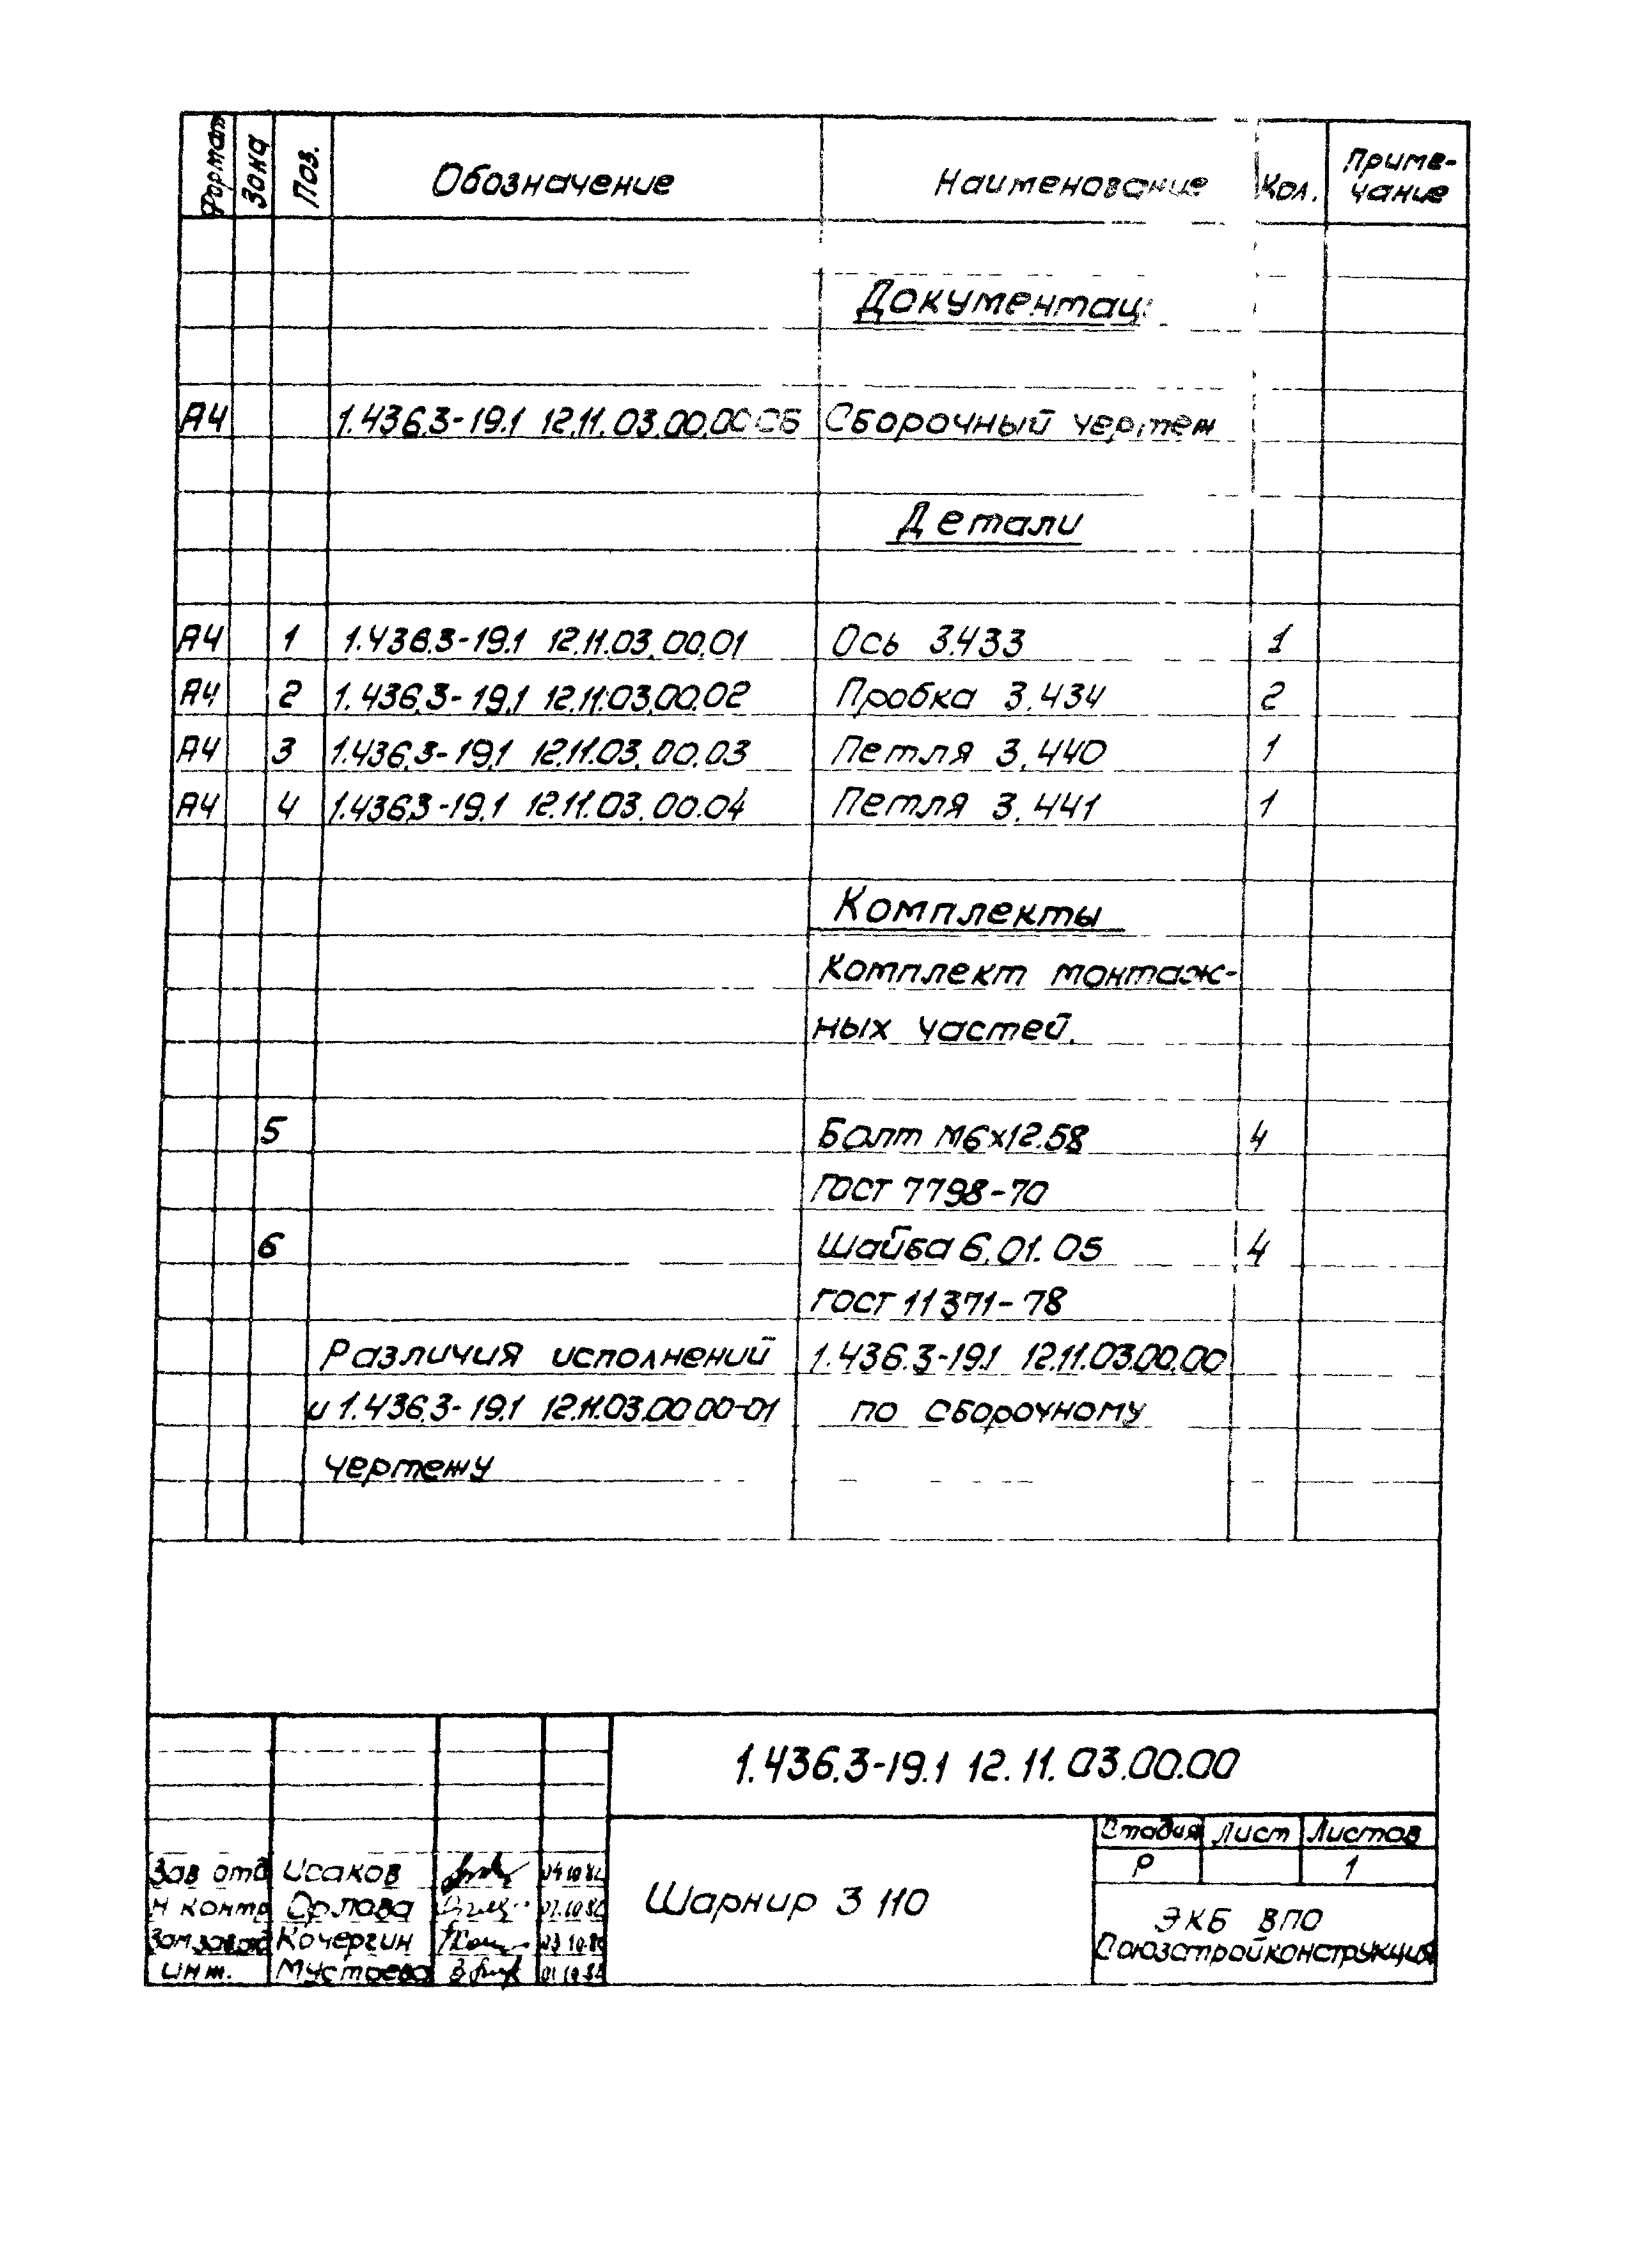 Формат Зона Поз. Обозначение Наименование Кол. Приме-
чание
Документац
А4 1.436.3-19.1 12.11.03.00.00СБ Сборочный чертеж
Детали
А4 1 1.436.3-19.1 12.11.03.00.01 Ось 3.433 1
А4 2 1.436.3-19.1 12.11.03.00.02 Пробка 3.434 2
А4 3 1.436.3-19.1 12.11.03.00.03 Петля 3.440 1
А4 4 1.436.3-19.1 12.11.03.00.04 Петля 3.441 1
Комплекты
Комплект монтаж-
ных частей.
5 Болт М6х12.58 4
ГОСТ 7798-70
6 Шайба 6.01.05 4
ГОСТ 11371-78
Различия исполнений 1.436.3-19.1 12.11.03.00.00
и 1.436.3-19.1 12.11.03.00 00-01 по сборочному
чертежу
1.436.3-19.1 12.11.03.00.00
Стадия Лист Листов
Р 1
Зав отд Исаков
Н контр Орлова
Зам зав отд Кочергин
Инж. Мустаева
Шарнир 3 110
ЭКБ ВПО
Союзстройконструкция